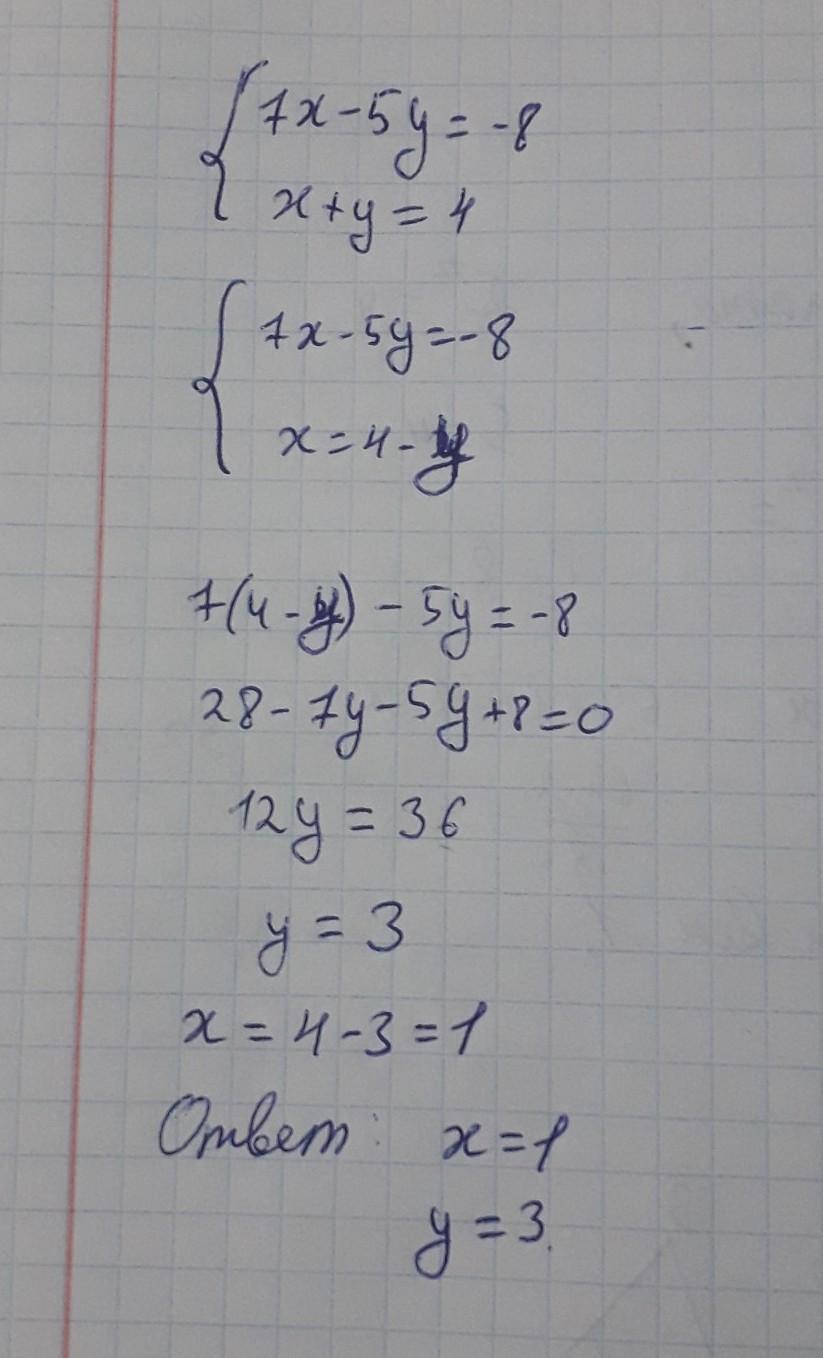 7x-5y=-8
x+y=4
7x-5y=-8
x=4-y
7(4-y)-5y=-8
28-7y-5y+8=0
12y=36
y=3
x=4-3=1
Ответ: x=1
y=3.